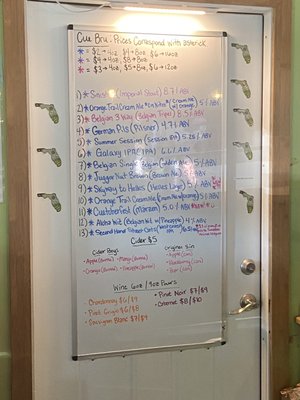 Cue Bru: Prices Correspond with asterick
* = $2 → 4oz, $4 → 8oz, $6 → 16oz
* = $4 → 4oz, $8 → 8oz
* = $3 → 4oz, $5 → 8oz, $6 → 12oz
1) * (Imperial Stout) 8.7% ABV
2) * Orange Trail Cream Ale *On Nitro*
3) * Belgian 3 Way (Belgian Tripel) 8.5% ABV
4) * German Pils (Pilsner) 4.7% ABV
5) * Summer Session (Session IPA) 5.25% ABV
6) * Galaxy IPA (IPA) 6.6% ABV
7) * Belgian Single (Belgian Ale) 5% ABV
8) * Jugger Nut Brown (Brown Ale) ABV
9) * Skyway to Helles (Helles Lager) 5% ABV
10) * Orange Trail Cream Ale 5% ABV
11) * (Marzen) 5.0% ABV
12) * Aloha Wit (Belgian Wit w/ Pineapple) 4% ABV
13) * Second Hand
Cider $5
Cider Boys
• Apple (Bottle) • Mango (Bottle)
• Orange (Bottle) • Pineapple (Bottle)
Original Sin
• Apple (can)
• Blackberry (can)
• Pear (can)
Wine 6oz / 9oz Pours
• Chardonnay $6/$9
• Pinot Grigio $6/$8
• Sauvignon Blanc $7/$9
• Pinot Noir $7/$9
• Cabernet $8/$10